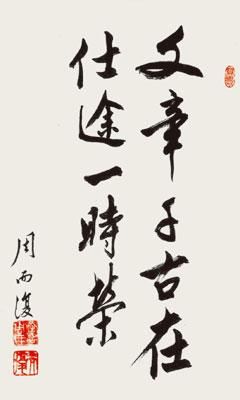 文章千古在
仕途一時榮
周而復